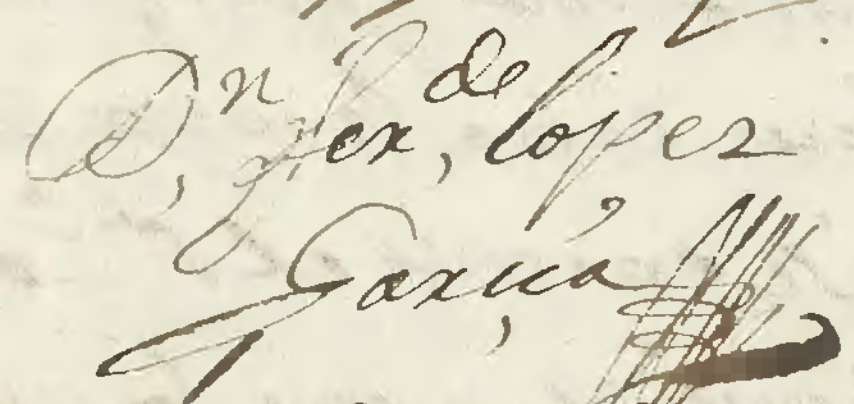 Dn, Fer,de lopez
Garcia,